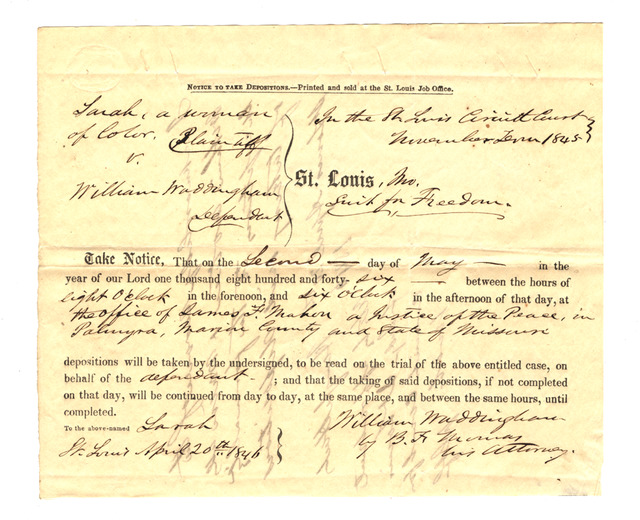 NOTICE TO TAKE DEPOSITIONS.—Printed and sold at the St. Louis Job Office.
Sarah, a woman
of Color. Plaintiff
v.
William Waddingham
Defendant
In the St. Louis Circuit Court
November Term 1845
St. Louis, Mo.
Suit for Freedom.
Take Notice, That on the Second day of May in the
year of our Lord one thousand eight hundred and forty-six between the hours of
eight O'clock in the forenoon, and six O'clock in the afternoon of that day, at
the office of James F. Mahon a Justice of the Peace, in
Palmyra, Marion County and State of Missouri
depositions will be taken by the undersigned, to be read on the trial of the above entitled case, on
behalf of the defendant ; and that the taking of said depositions, if not completed
on that day, will be continued from day to day, at the same place, and between the same hours, until
completed.
To the above-named Sarah
St. Louis April 20th 1846
William Waddingham
by B. F. Thomas
his Attorney.